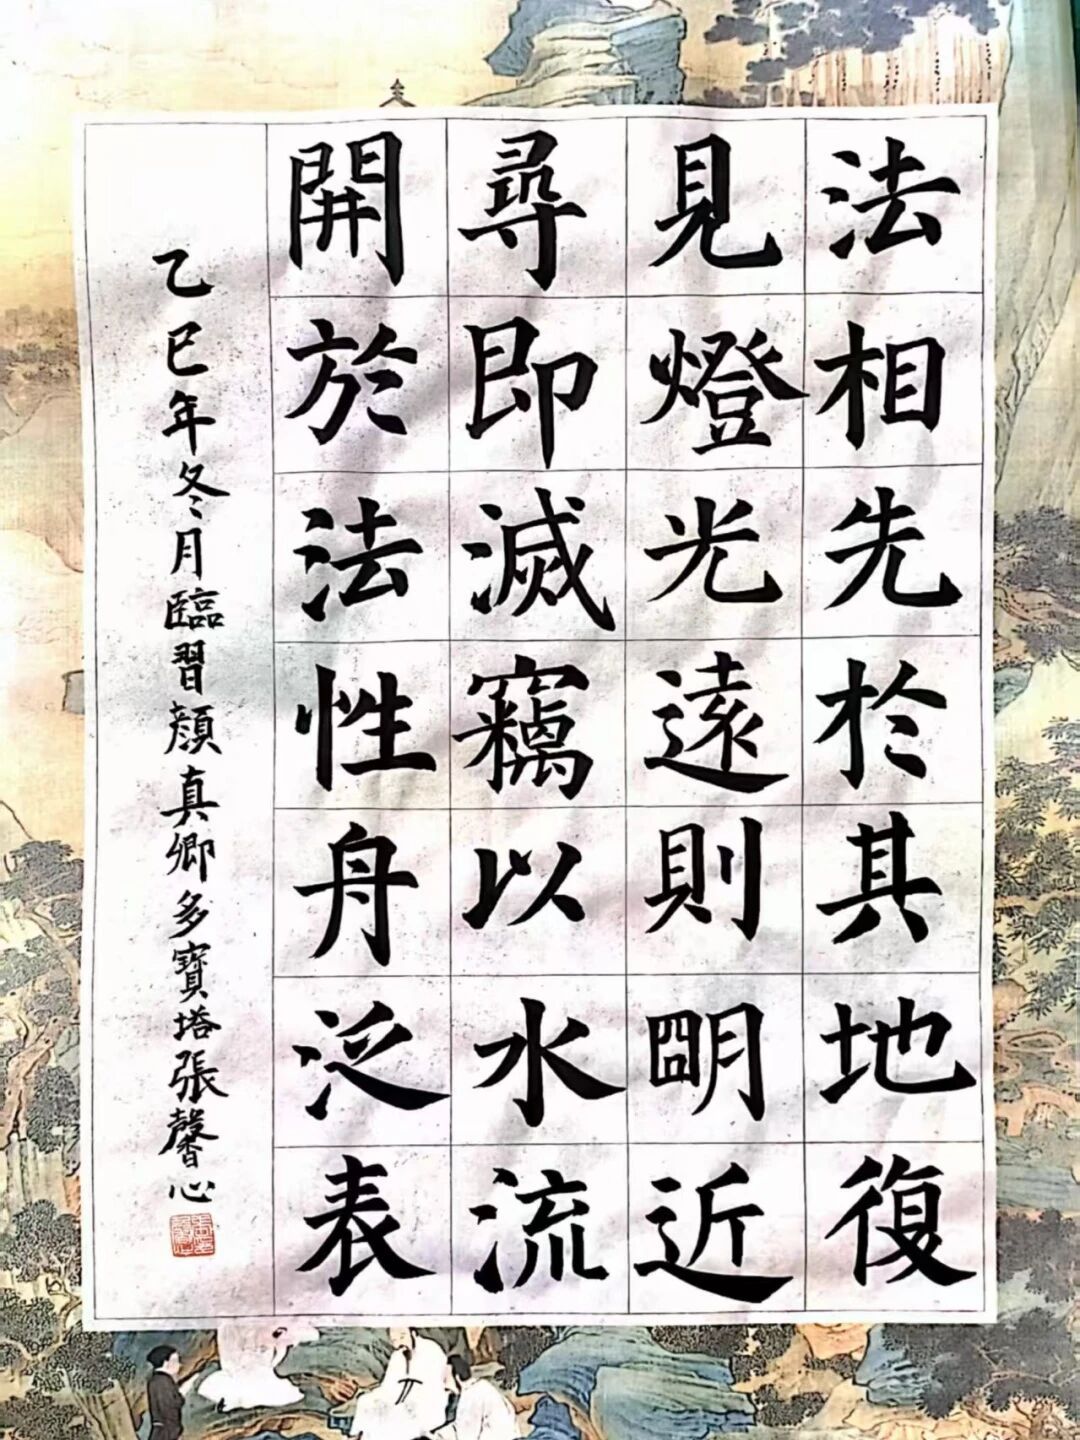 法相先於其地復
見燈光遠則明近
尋即滅竊以水流
開於法性舟泛表
乙巳年冬月臨習顏真卿多寶塔張馨心